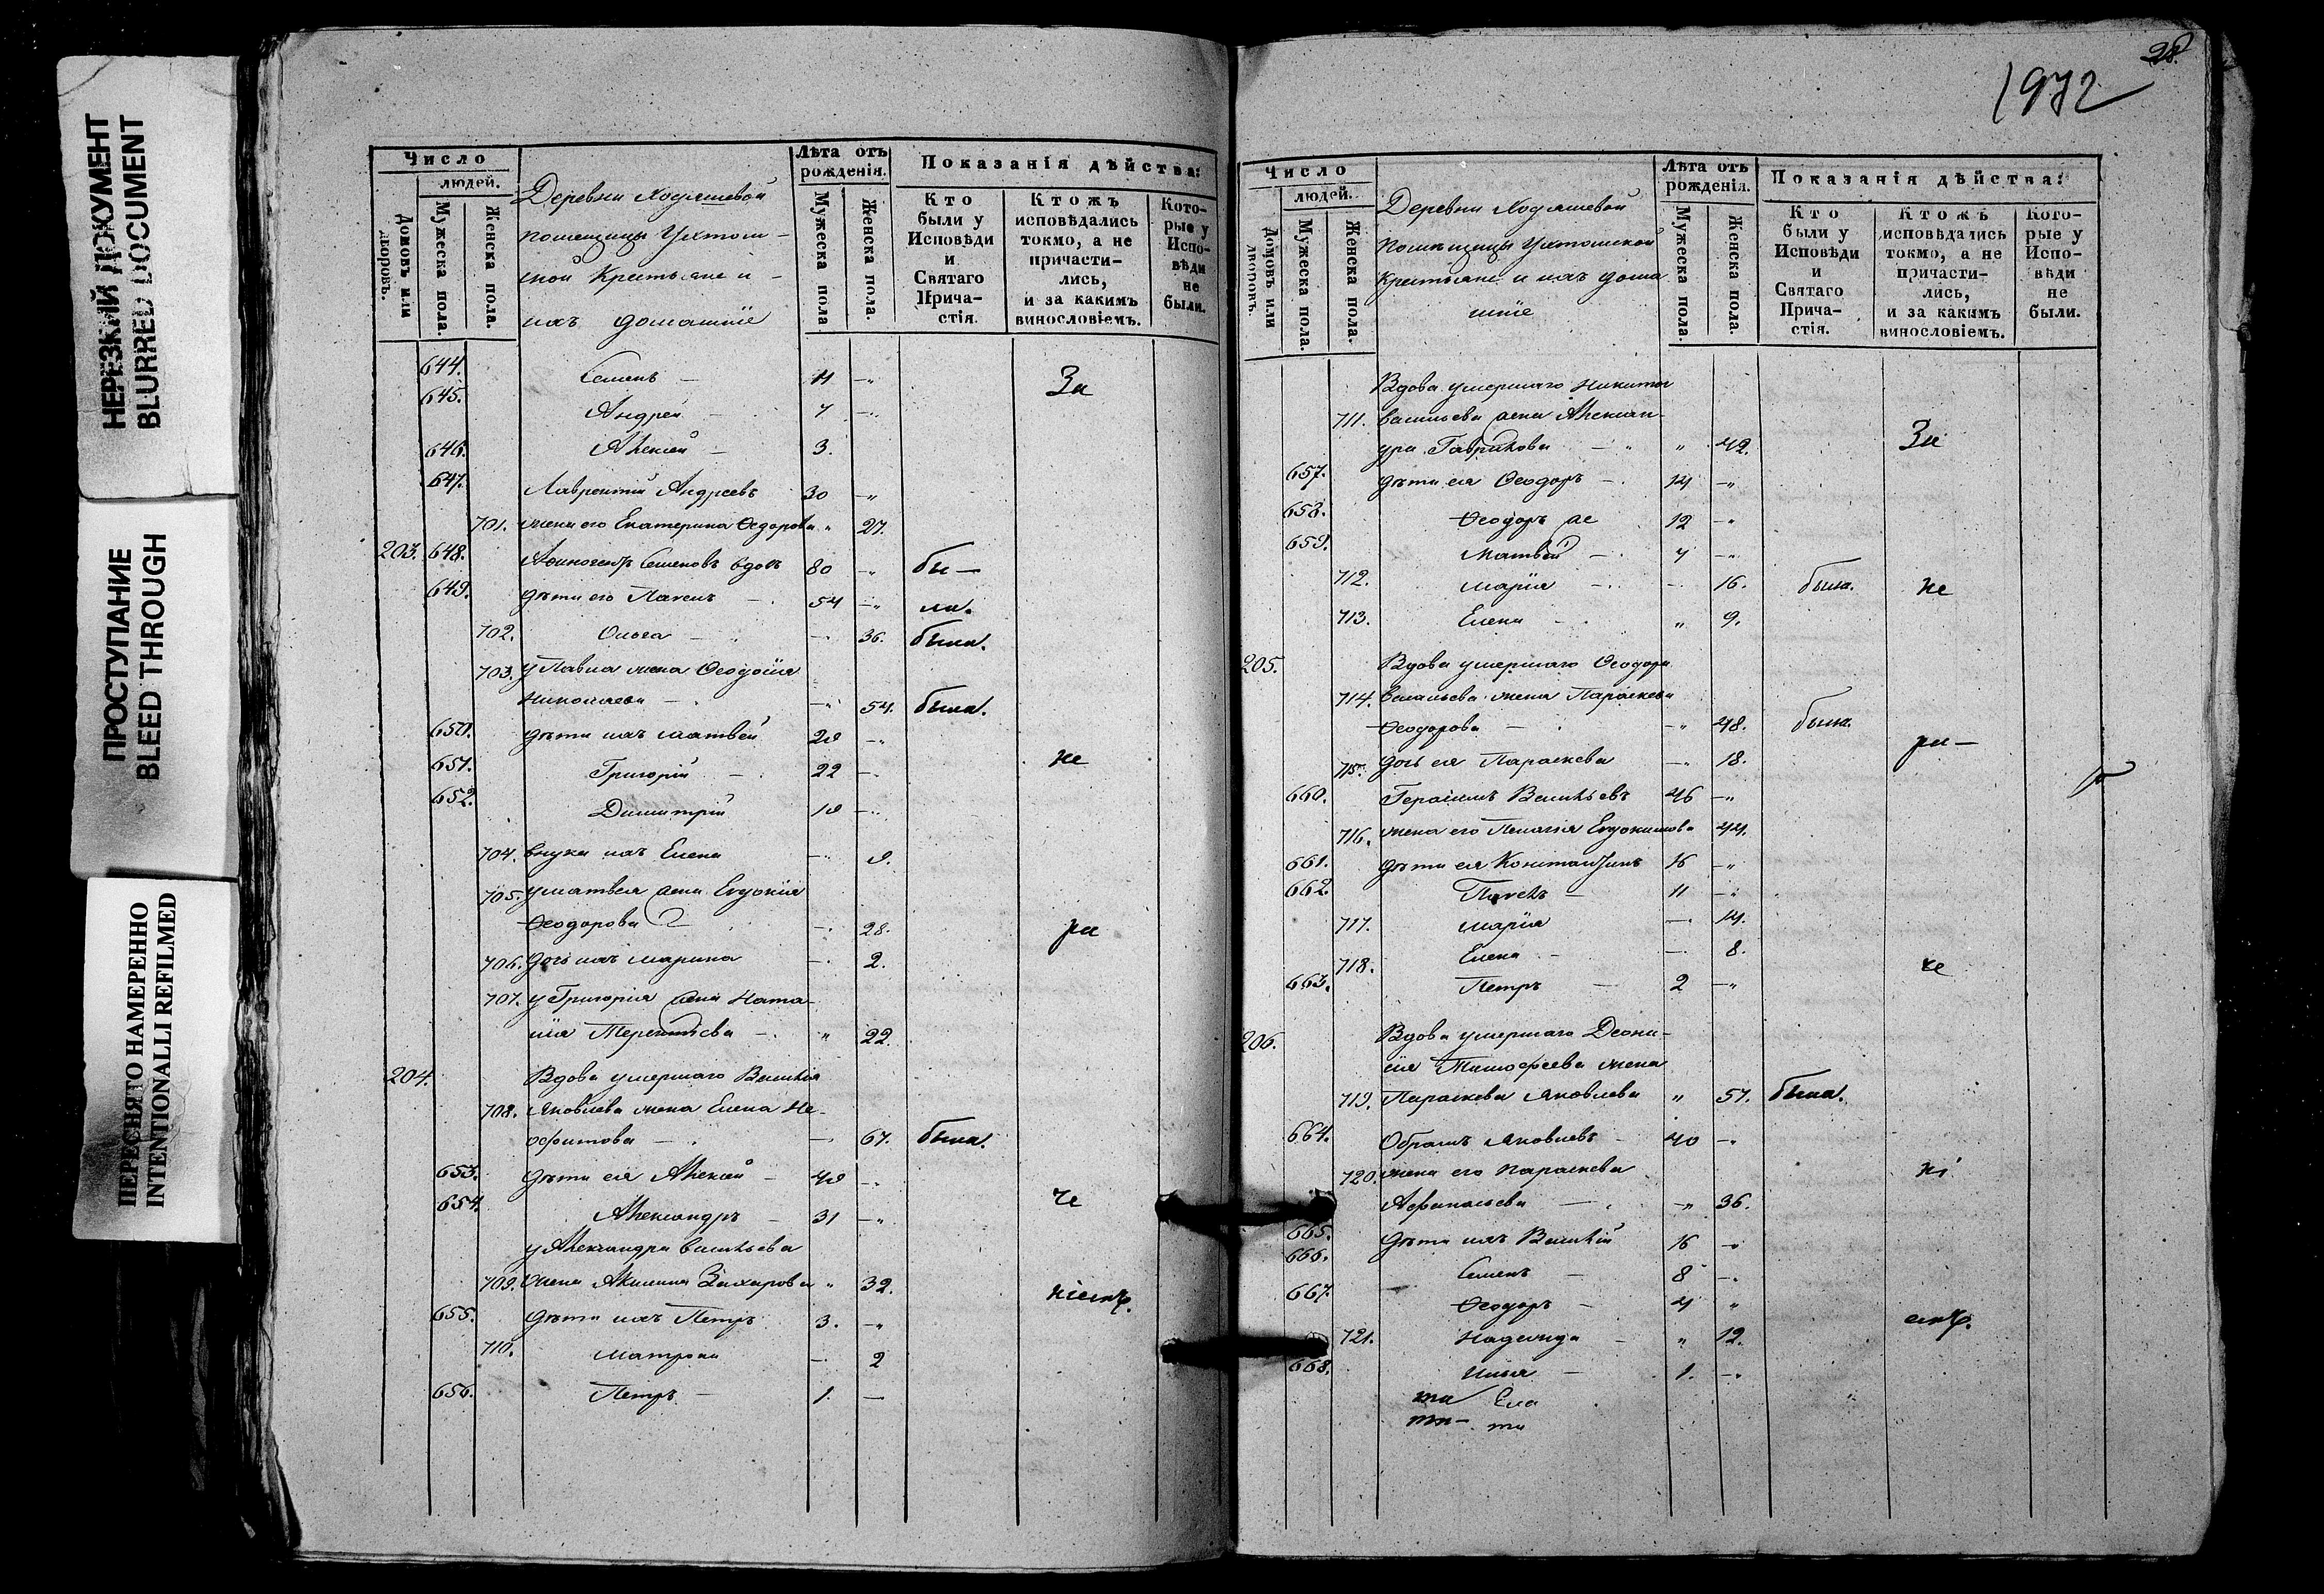 НЕРЕЗКИЙ ДОКУМЕНТ
BLURRED DOCUMENT
ПРОСТУПАНИЕ
BLEED THROUGH
ПЕРЕСНЯТО НАМЕРЕННО
INTENTIONALLI REFILMED
Число
людей.
Домовъ или дворовъ.
Мужеска пола.
Женска пола.
Деревни Ходяшевой
помещицы Ухтом-
ской Крестьяне и
ихъ домашніе
Лѣта отъ рожденія.
Мужеска пола
Женска пола.
Показанія дѣйства:
Кто были у Исповѣди и Святаго Прича-стія.
Ктожъ исповѣдались токмо, а не причасти-лись, и за какимъ винословіемъ.
Кото-рые у Испо-вѣди не были.
644. Семенъ 11 За
645. Андрей 7
646. Алексей 3.
647. Лаврентій Андреевъ 30
701. жена его Екатерина Ѳедорова 27.
203. 648. Афиногенъ Семеновъ вдов 80 бы-
649. дѣти его Павелъ 54 ли.
702. Ольга 36. была.
703. у Павла жена Ѳеодосія
Николаева 54. была.
650. дѣти ихъ Матвей 29
651. Григорій 22 не
652. Димитрій 19
704. внука ихъ Елена 9.
705. у Матвея жена Евдокія
Ѳеодорова 28. ра
706. дочь ихъ Марина 2.
707. у Григорія жена Ната-
лія Терентіева 22.
204. Вдова умершаго Василія
708. Яковлева жена Елена Не-
офитова 67. была.
653. дѣти ея Алексей 49
654. Александръ 31 че
у Александра Васильева
709. жена Акилина Захарова 32.
655. дѣти ихъ Петръ 3.
710. Матрона 2
656. Петръ 1.
28.
1972
Число
людей.
Домовъ или дворовъ.
Мужеска пола.
Женска пола.
Деревни Ходяшевой
помѣщицы Ухтомской
Крестьяне и ихъ дома
шніе
Лѣта отъ рожденія.
Мужеска пола.
Женска пола.
Показанія дѣйства:
Кто были у Исповѣди и Святаго Прича-стія.
Ктожъ исповѣдались токмо, а не причасти-лись, и за какимъ винословіемъ.
Кото-рые у Испо-вѣди не были.
Вдова умершаго Никиты
711. Васильева жена Алексан-
дра Гаврилова 42. За
657. дѣти ея Ѳеодоръ 14
658. Ѳеодоръ же 12
659. Матвей 7
712. Марія 16. была. не
713. Елена 9.
205. Вдова умершаго Ѳеодора
714. Васильева жена Параскева
Ѳеодорова 48. была.
ра-
715. дочь ея Параскева 18.
660. Герасимъ Васильевъ 46
716. жена его Пелагія Евдокимова 44.
661. дѣти ея Константинъ 16
662. Павелъ 11
717. Марія 14.
718. Елена 8. че
663. Петръ 2
206. Вдова умершаго Деони-
сія Тимофеева жена
719. Параскева Яковлева 57. была.
664. Обрамъ Яковлевъ 40
720. жена его Параскева ні
Афанасьева 36.
665. дѣти ихъ Василій 16
666. Семенъ 8
667. Ѳеодоръ 4
721. Надежда 12.
668. Илья 1.